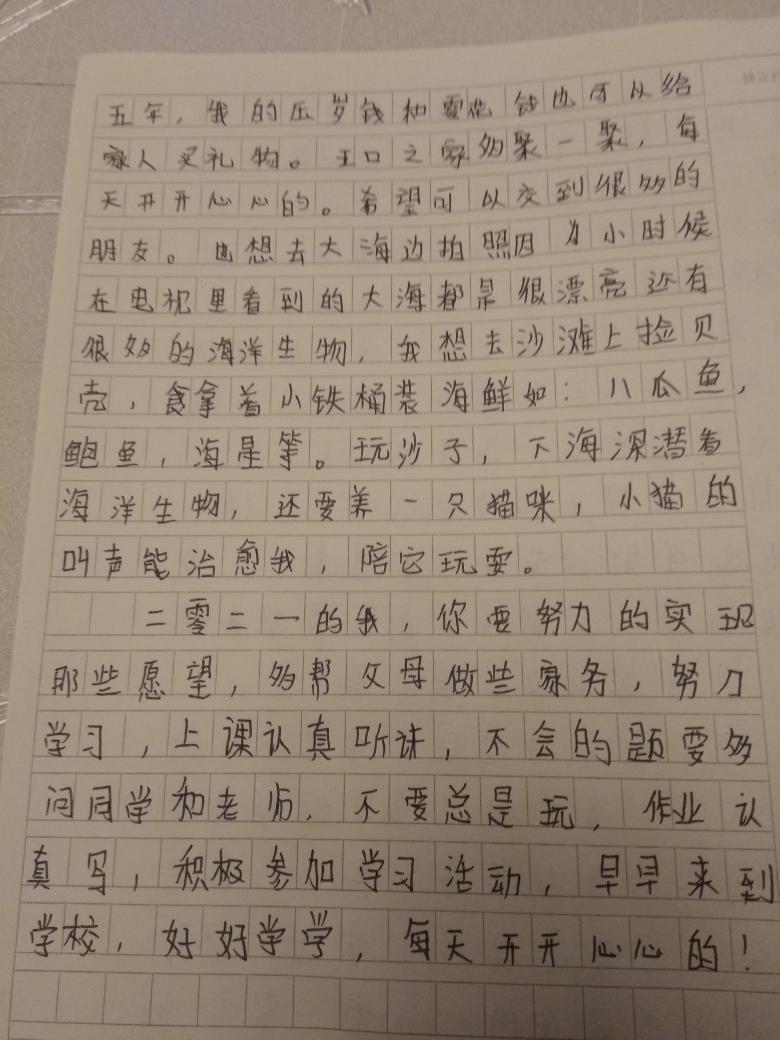 五年，我的压岁钱和零花钱也可以给
家人买礼物。五口之家多聚一聚，每
天开开心心的。希望可以交到很多的
朋友。也想去大海边拍照因为小时候
在电视里看到的大海都是很漂亮还有
很多的海洋生物，我想去沙滩上捡贝
壳，食拿着小铁桶装海鲜如：八瓜鱼，
鲍鱼，海星等。玩沙子，下海深潜看
海洋生物，还要养一只猫咪，小猫的
叫声能治愈我，陪它玩耍。
二零二一的我，你要努力的实现
那些愿望，多帮父母做些家务，努力
学习，上课认真听课，不会的题要多
问同学和老师，不要总是玩，作业认
真写，积极参加学习活动，早早来到
学校，好好学学，每天开开心心的！